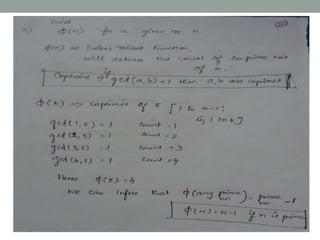 Find
2) ϕ(n) for a given no. n
ϕ(n) => Euler's Totient function,
will return the count of coprime no's
of n.
Coprime if gcd(a, b) = 1 then a, b are coprimes
ϕ(5) => coprimes of 5 [1 to n-1;
1 to 4]
gcd(1,5) = 1 count = 1
gcd(2,5) = 1 count = 2
gcd(3,5) = 1 count = 3
gcd(4,5) = 1 count = 4
Hence ϕ(5) = 4
We can infer that ϕ(any prime no) = prime no - 1
ϕ(n) = n-1 if n is prime